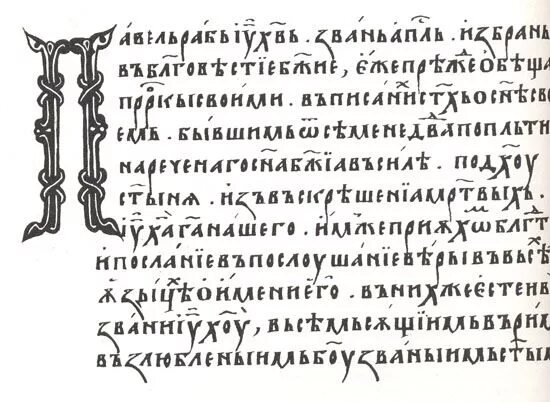 Павелъ рабъ іу҃ х҃въ . званъ ап҃лъ . избранъ
въ бл҃говѣстїе бж҃ие , є́же преже ѻбѣща
пр҃рокы своими . въ писанїи ст҃хъ о сн҃ѣ сво
емь . бывшимь ѿ сѣмене дв҃да по плъти
нареченаго сн҃а бж҃їа въ силѣ . по дх҃оу
ст҃ынѧ . изъ въскрѣшенїа мр҃твыхъ .
іу҃ х҃а г҃а нашего . имже прїѧхѡм бл҃гть
и посланїе въ послоушанїе вѣры въ всѣ
ѧ҆зыцѣ ѻ имени єго . въ них же єсте и в
звани іу҃ х҃оу , въсѣмь сѧщїимь въ рим
възлюбленыимь б҃оу званыимь ст҃ым